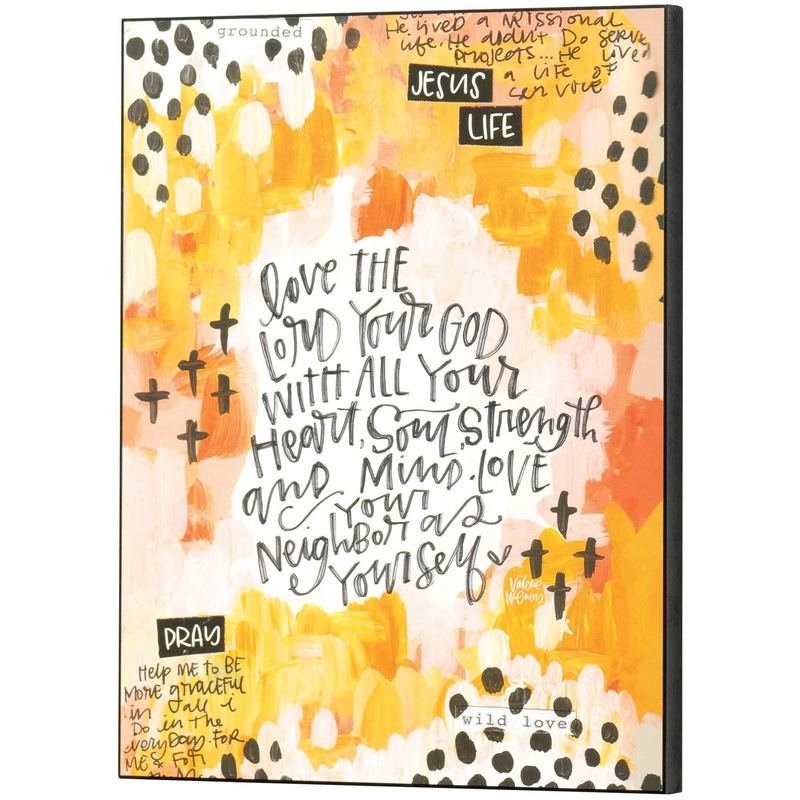 grounded
He lived a Missional
life. He didn't Do serve
projects... He lived
a life of
JESUS
LIFE
love THE
LORD Your GOD
WITH ALL Your
Heart, Soul, Strength
and MIND. LOVE
Your
Neighbor as
Yourself
Valerie
Wieners
PRAY
Help ME to BE
More graceful
in all i
Do in the
everyDay. FOR
ME &
wild love